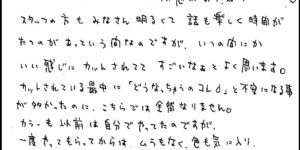 スタッフの方もみなさん明るくて話も楽しく時間が
たつのがあっという間なのですが、いつの間にか
いい感じにカットされてて すごいなぁとよく思います。
カットされている最中に「どうなっちゃうのコレ」と不安になる事
が多かったのに、こちらでは全然なりません。
カラーも以前は自分でやってたのですが、
一度やってもらってからは、ムラもなく、色も気に入り、